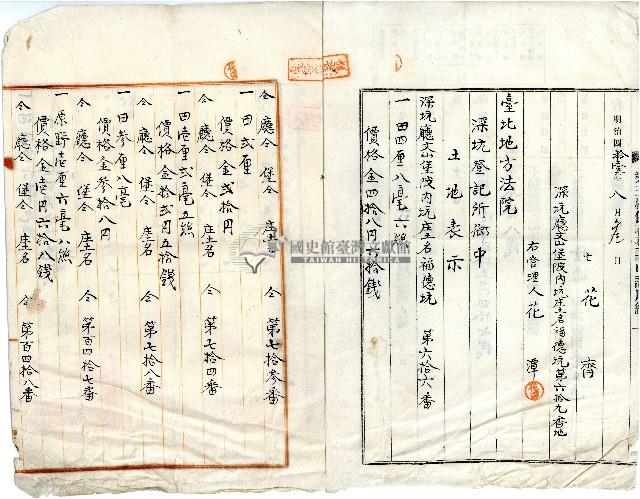 明治四拾壹年八月 日
七花齊
深坑廳文山堡陂內坑庄土名福德坑第六拾九番地
右管理人 花潭
臺北地方法院
深坑登記所御中
土地表示
深坑廳文山堡陂內坑庄土名福德坑 第六拾六番
一田四厘八毫六絲
價格金四拾八円六拾錢
仝廳仝堡仝庄土名仝 第七拾參番
一田貳厘
價格金貳拾円
仝廳仝堡仝庄土名仝 第七拾四番
一田壱厘貳毫五絲
價格金拾貳円五拾錢
仝廳仝堡仝庄土名仝 第七拾八番
一田參厘八毫
價格金參拾八円
仝廳仝堡仝庄土名仝 第百四拾七番
一原野壱厘六毫八絲
價格金壱円六拾八錢
仝廳仝堡仝庄土名仝 第百四拾八番
國史館臺灣文獻館
TAIWAN HISTORICA